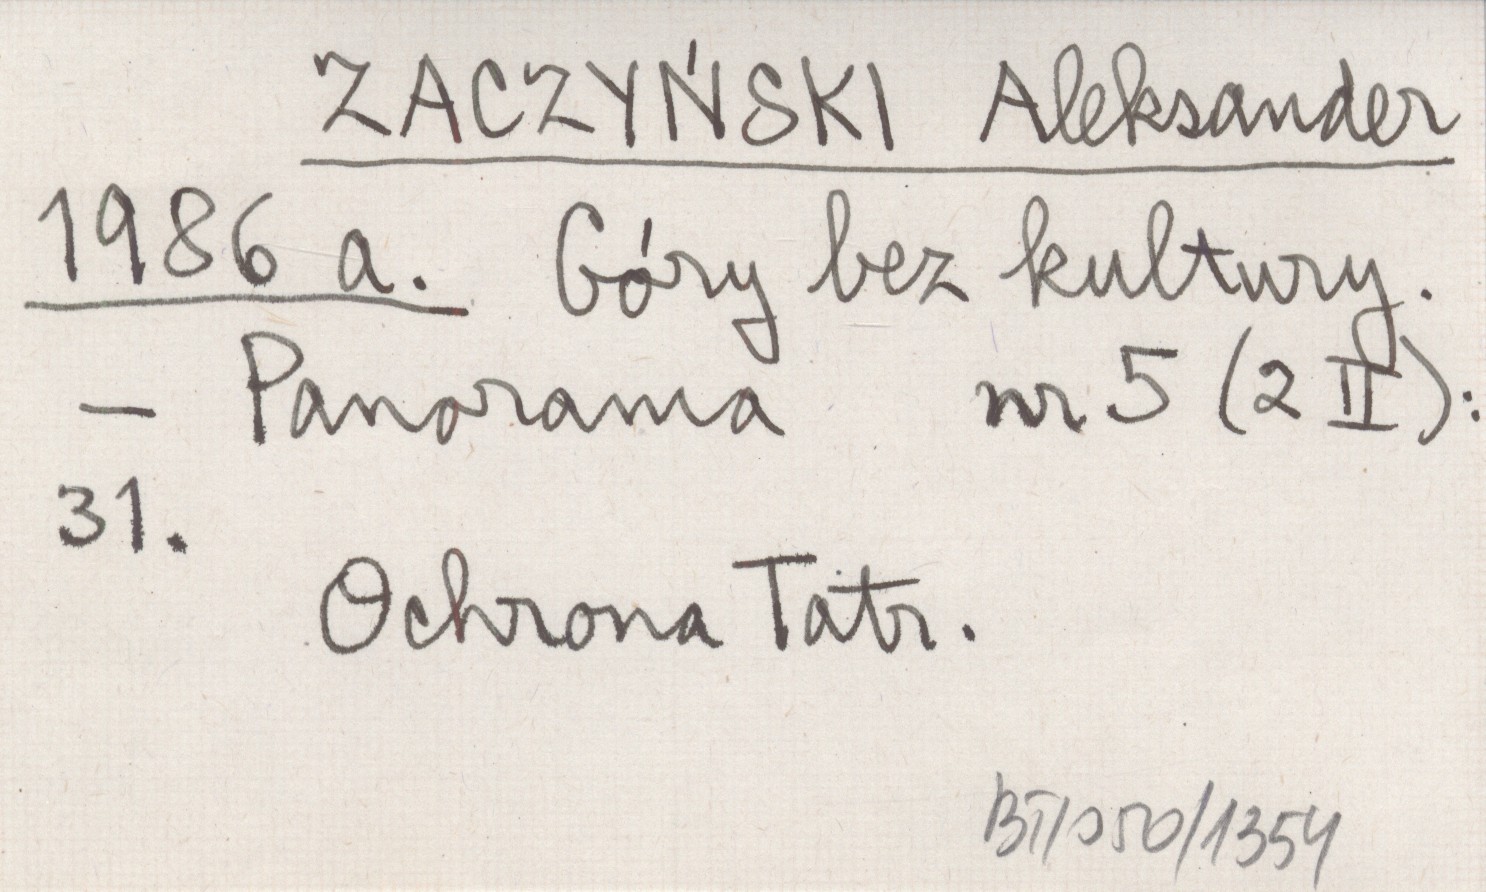 ZACZYŃSKI Aleksander
1986 a. Góry bez kultury.
– Panorama nr 5 (2 II):
31.
Ochrona Tatr.
BT/050/1354